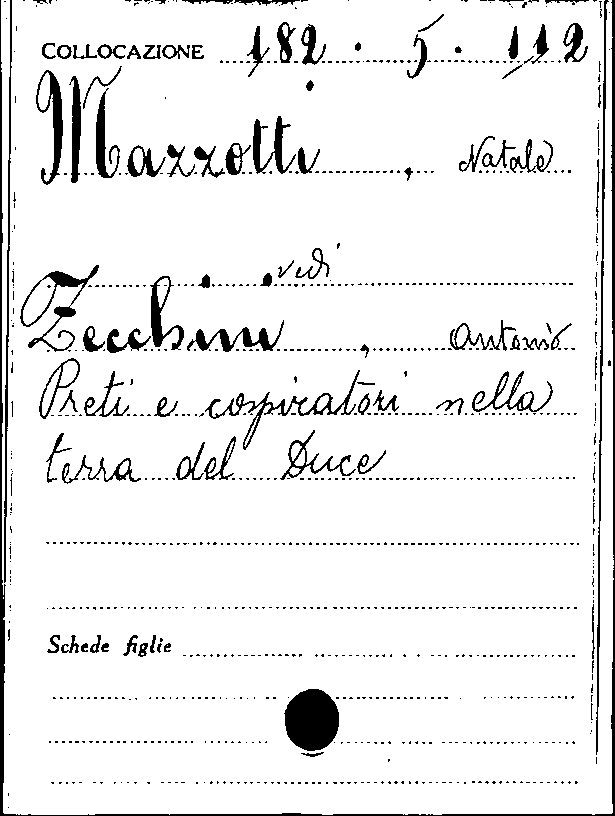 COLLOCAZIONE 182.5.112
Mazzotti, Natale
vedi
Zecchini, Antonio
Preti e cospiratori nella
terra del Duce
Schede figlie